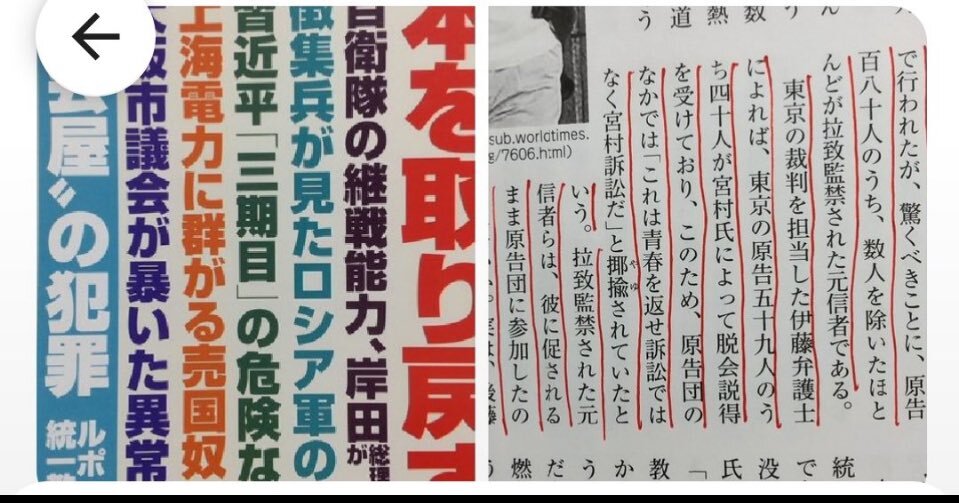 本を取り戻す
自衛隊の継戦能力、岸田総理が
徴集兵が見たロシア軍の
習近平「三期目」の危険な
上海電力に群がる売国奴
大阪市議会が暴いた異常
屋〟の犯罪
ルポ
統一
ん
う
数
熱
道
う
sub.worldtimes.
g/7606.html)
で行われたが、驚くべきことに、原告
百八十人のうち、数人を除いたほと
んどが拉致監禁された元信者である。
東京の裁判を担当した伊藤弁護士
によれば、東京の原告五十九人のう
ち四十人が宮村氏によって脱会説得
を受けており、このため、原告団の
なかでは「これは青春を返せ訴訟では
なく宮村訴訟だ」と揶揄(やゆ)されていたと
いう。拉致監禁された元
信者らは、彼に促される
まま原告団に参加したの
統
で
没
氏
「
教
か
う
だ
燃